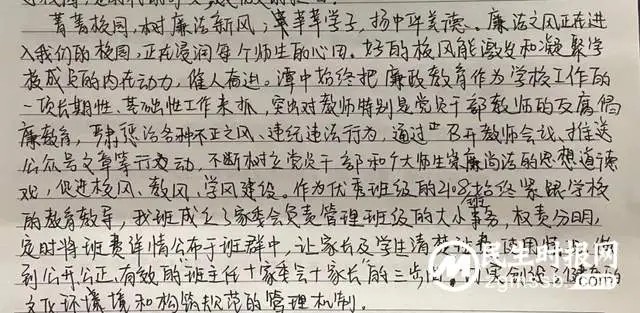 菁菁校园，树廉洁新风；莘莘学子，扬中华美德。廉洁之风正在进
入我们的校园，正在浸润每个师生的心田。好的校风能激发和凝聚学
校成长的内在动力，催人奋进。潭中始终把廉政教育作为学校工作的
一项长期性、基础性工作来抓，突出对教师特别是党员干部教师的反腐倡
廉教育，肃惩治各种不正之风、违纪违法行为，通过"召开教师会议、推送
公众号文章等行为动，不断树立党员干部和广大师生崇廉尚法的思想道德
观，促进校风、教风、学风建设。作为优秀班级的2108班始终紧跟学校
的教育教导，我班成立了家委会负责管理班级的大小事务，权责分明，
定时将班费详情公布于班群中，让家长及学生清楚班费使用
到公开公正，有效的"班主任十家委会十家长"的三步
文化环境和构筑规范的管理机制。
民生时报网
zgmssb.com